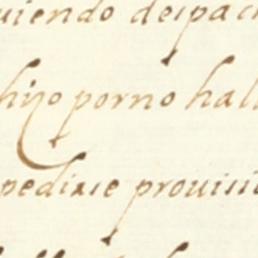 uiendo despac
hijo porno hall
pedirse prouisi